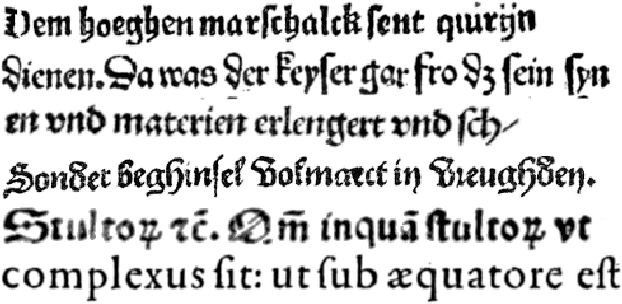 Dem hoeghen marſchalck ſent quirijn
dienen. Da was der keyſer gar fro dꝫ ſein ſyn
en vnd materien erlengert vnd ſch⸗
Sonder beghinſel volmaect in vreughden.
Stultoꝝ ⁊c̃. Om̄ inquā ſtultoꝝ vt
complexus ſit: ut ſub æquatore eſt